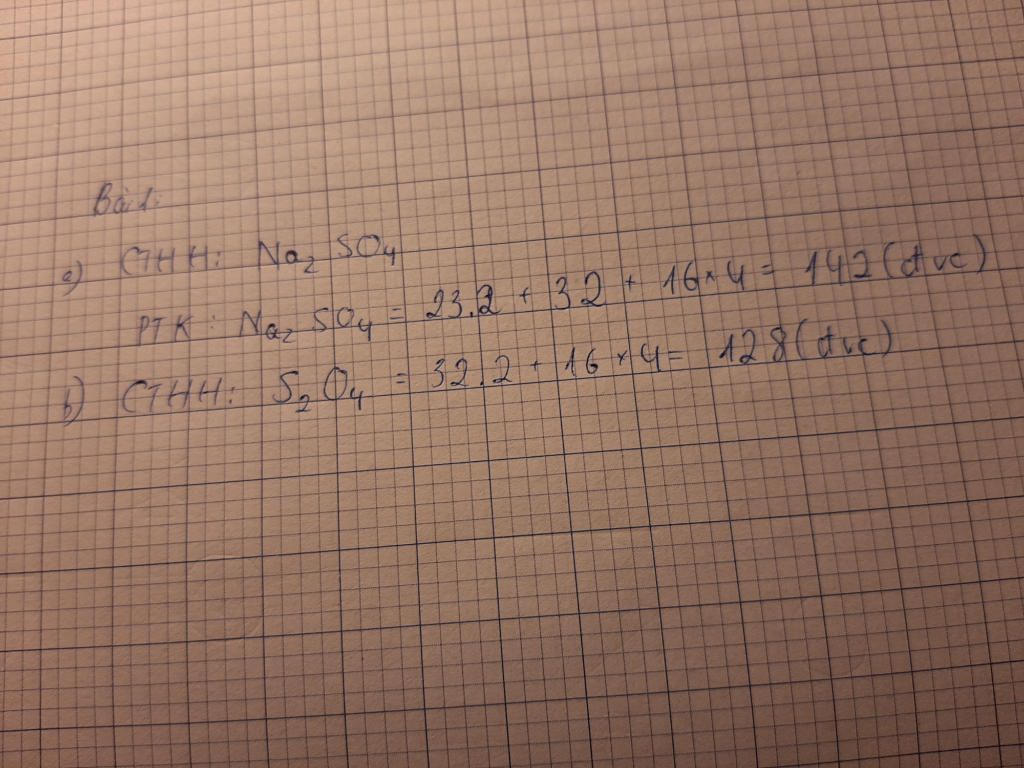 Bài 1:
a) CTHH: Na₂SO₄
PTK: Na₂SO₄ = 23.2 + 32 + 16 × 4 = 142 (đvc)
b) CTHH: S₂O₄ = 32.2 + 16 × 4 = 128 (đvc)